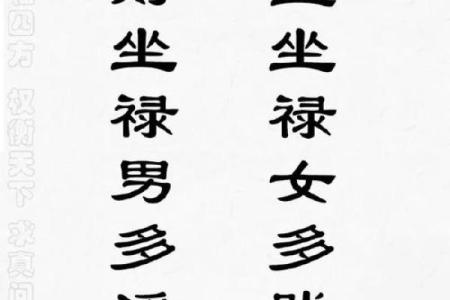 坐禄女多
坐禄男多
四方 权衡天下 求真问